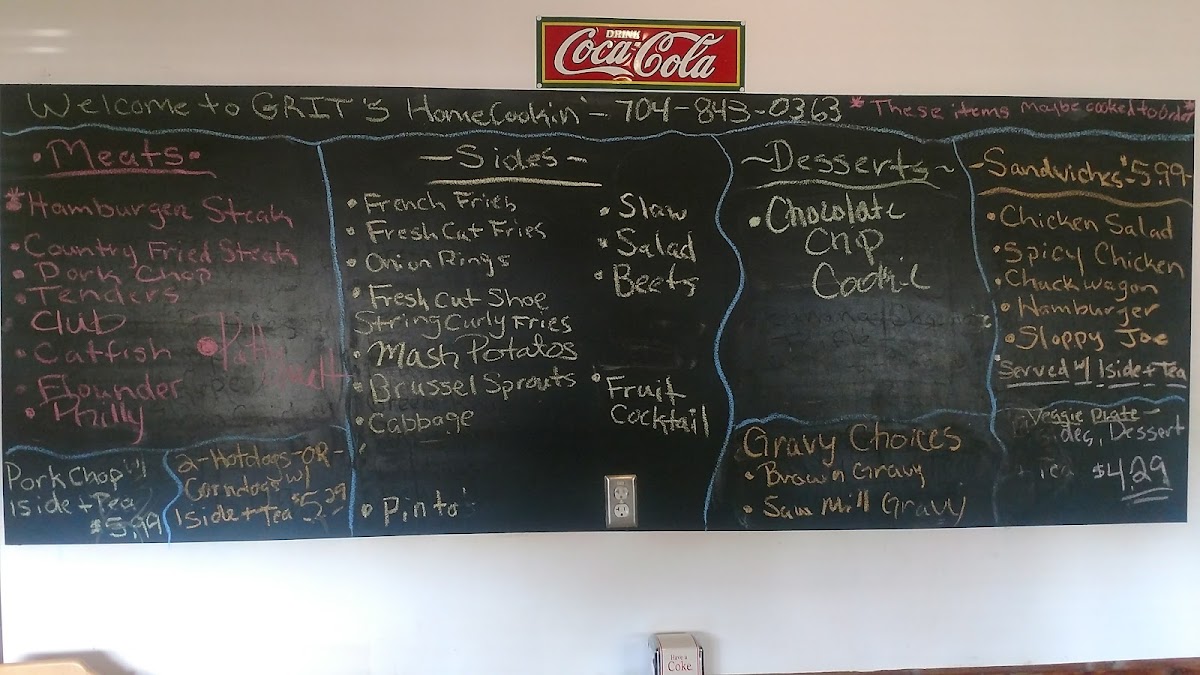 DRINK
Coca-Cola
Welcome to GRIT'S HomeCookin' - 704-843-0363 * These items maybe cooked to order *
• Meats •
* Hamburger Steak
• Country Fried Steak
• Pork Chop
• Tenders
Club
• Catfish
• Flounder
• Philly
• Patty
Melt
Pork Chop w/
1side + Tea
$5.99
2-Hotdogs-OR-
Corndogs w/
1side + Tea $5.29
- Sides -
• French Fries
• Fresh Cut Fries
• Onion Rings
• Fresh Cut Shoe
String Curly Fries
• Mash Potatos
• Brussel Sprouts
• Cabbage
• Pinto
• Slaw
• Salad
• Beets
• Fruit
Cocktail
~ Desserts ~
• Chocolate
Chip
Cookie
Gravy Choices
• Brown Gravy
• Saw Mill Gravy
- Sandwiches - $5.99 -
• Chicken Salad
• Spicy Chicken
• Chuckwagon
• Hamburger
• Sloppy Joe
Served w/ 1side + Tea
Veggie Plate -
ides, Dessert
+ Tea $4.29
Have a
Coke